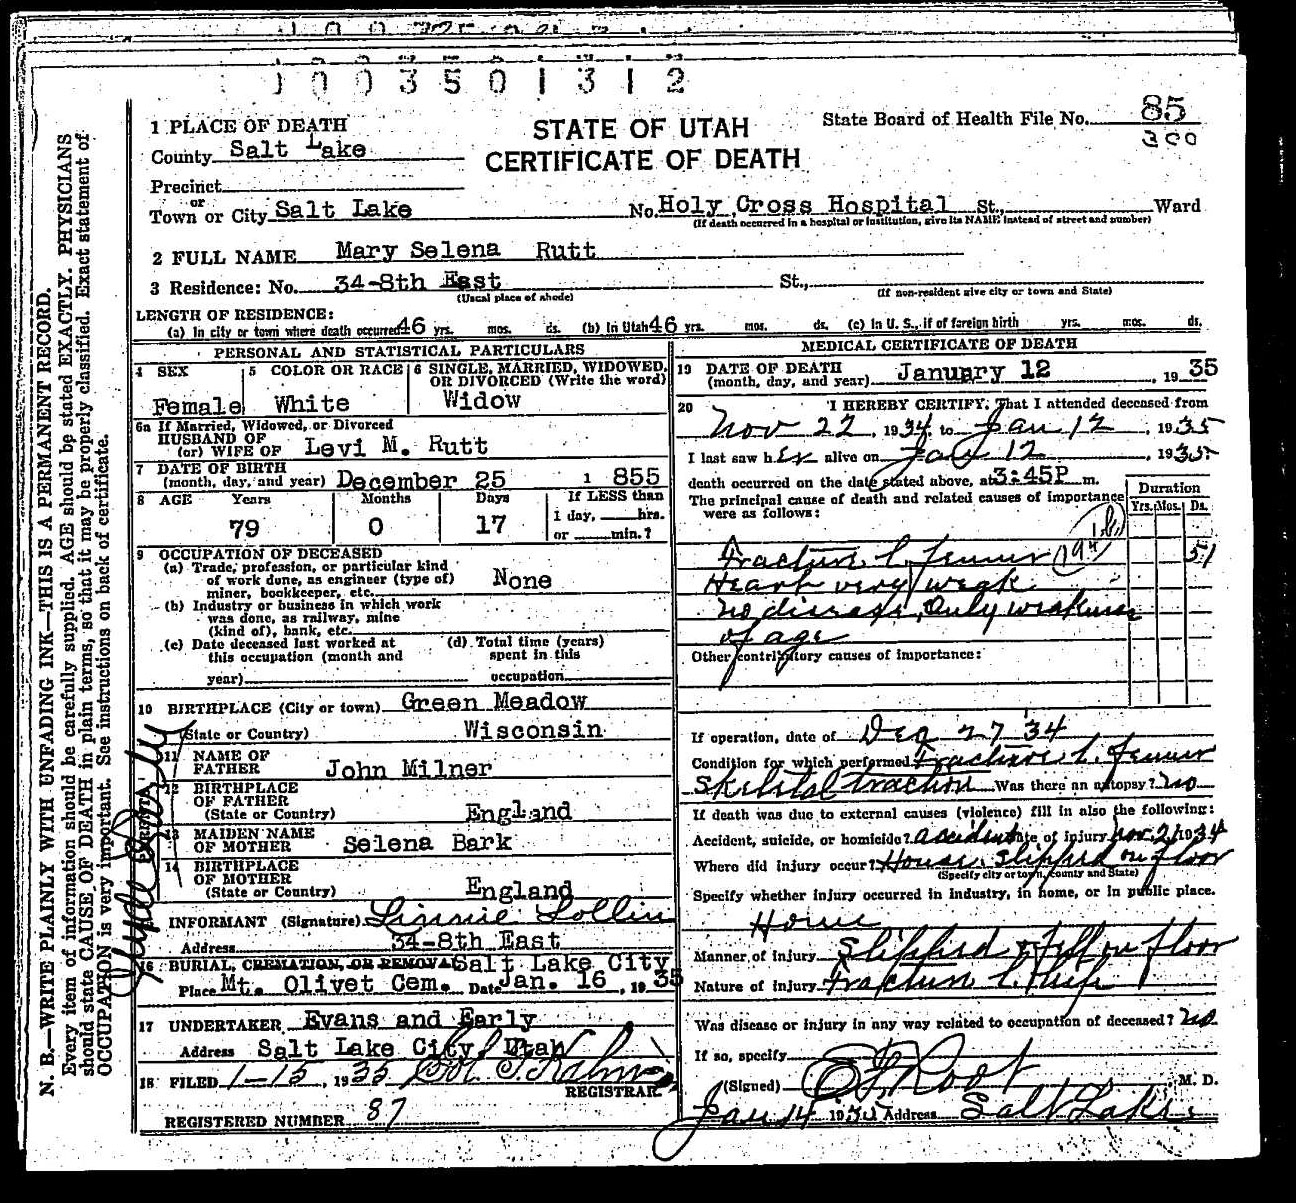 1003501312
1 PLACE OF DEATH
STATE OF UTAH
CERTIFICATE OF DEATH
State Board of Health File No. 85
300
County Salt Lake
Precinct
or
Town or City Salt Lake No. Holy Cross Hospital St., Ward
(If death occurred in a hospital or institution, give its NAME instead of street and number)
2 FULL NAME Mary Selena Rutt
3 Residence: No. 34-8th East St.,
(Usual place of abode) (If non-resident give city or town and State)
LENGTH OF RESIDENCE:
(a) In city or town where death occurred 46 yrs. mos. ds. (b) In Utah 46 yrs. mos. ds. (c) In U. S., if of foreign birth yrs. mos. ds.
PERSONAL AND STATISTICAL PARTICULARS
4 SEX 5 COLOR OR RACE 6 SINGLE, MARRIED, WIDOWED, OR DIVORCED (Write the word)
Female White Widow
6a If Married, Widowed, or Divorced
HUSBAND OF
(or) WIFE OF Levi M. Rutt
7 DATE OF BIRTH
(month, day, and year) December 25 1 855
8 AGE Years Months Days If LESS than
79 0 17 1 day, hrs.
or min.?
9 OCCUPATION OF DECEASED
(a) Trade, profession, or particular kind
of work done, as engineer (type of)
miner, bookkeeper, etc. None
(b) Industry or business in which work
was done, as railway, mine
(kind of), bank, etc.
(c) Date deceased last worked at
this occupation (month and
year)
(d) Total time (years)
spent in this
occupation
10 BIRTHPLACE (City or town) Green Meadow
(State or Country) Wisconsin
PARENTS
11 NAME OF
FATHER John Milner
12 BIRTHPLACE
OF FATHER
(State or Country) England
13 MAIDEN NAME
OF MOTHER Selena Bark
14 BIRTHPLACE
OF MOTHER
(State or Country) England
INFORMANT (Signature) Linnie Lollin
Address 34-8th East
16 BURIAL, CREMATION, OR REMOVAL Salt Lake City
Place Mt. Olivet Cem. Date Jan. 16, 1935
17 UNDERTAKER Evans and Early
Address Salt Lake City Utah
18 FILED 1-15, 1935
REGISTRAR
REGISTERED NUMBER 87
MEDICAL CERTIFICATE OF DEATH
19 DATE OF DEATH
(month, day, and year) January 12, 1935
20 I HEREBY CERTIFY, That I attended deceased from
Nov 22, 1934, to Jan 12, 1935
I last saw her alive on Jan 12, 1935
death occurred on the date stated above, at 3:45P m.
The principal cause of death and related causes of importance
were as follows:
Duration
Yrs. Mos. Ds.
Fracture l. femur 51
Heart very weak
no disease, Only weakness
of age
Other contributory causes of importance:
If operation, date of Dec 27 '34
Condition for which performed Fracture l. femur
Skeletal traction Was there an autopsy? no
If death was due to external causes (violence) fill in also the following:
Accident, suicide, or homicide? accident Date of injury Nov 21 1934
Where did injury occur? House. Slipped on floor
(Specify city or town, county and State)
Specify whether injury occurred in industry, in home, or in public place.
Home
Manner of injury Slipped & fell on floor
Nature of injury Fracture l. hip
Was disease or injury in any way related to occupation of deceased? no
If so, specify
(Signed) Root, M. D.
Jan 14 1935 Address Salt Lake
N. B.—WRITE PLAINLY WITH UNFADING INK—THIS IS A PERMANENT RECORD.
Every item of information should be carefully supplied. AGE should be stated EXACTLY. PHYSICIANS
should state CAUSE OF DEATH in plain terms, so that it may be properly classified. Exact statement of
OCCUPATION is very important. See instructions on back of certificate.